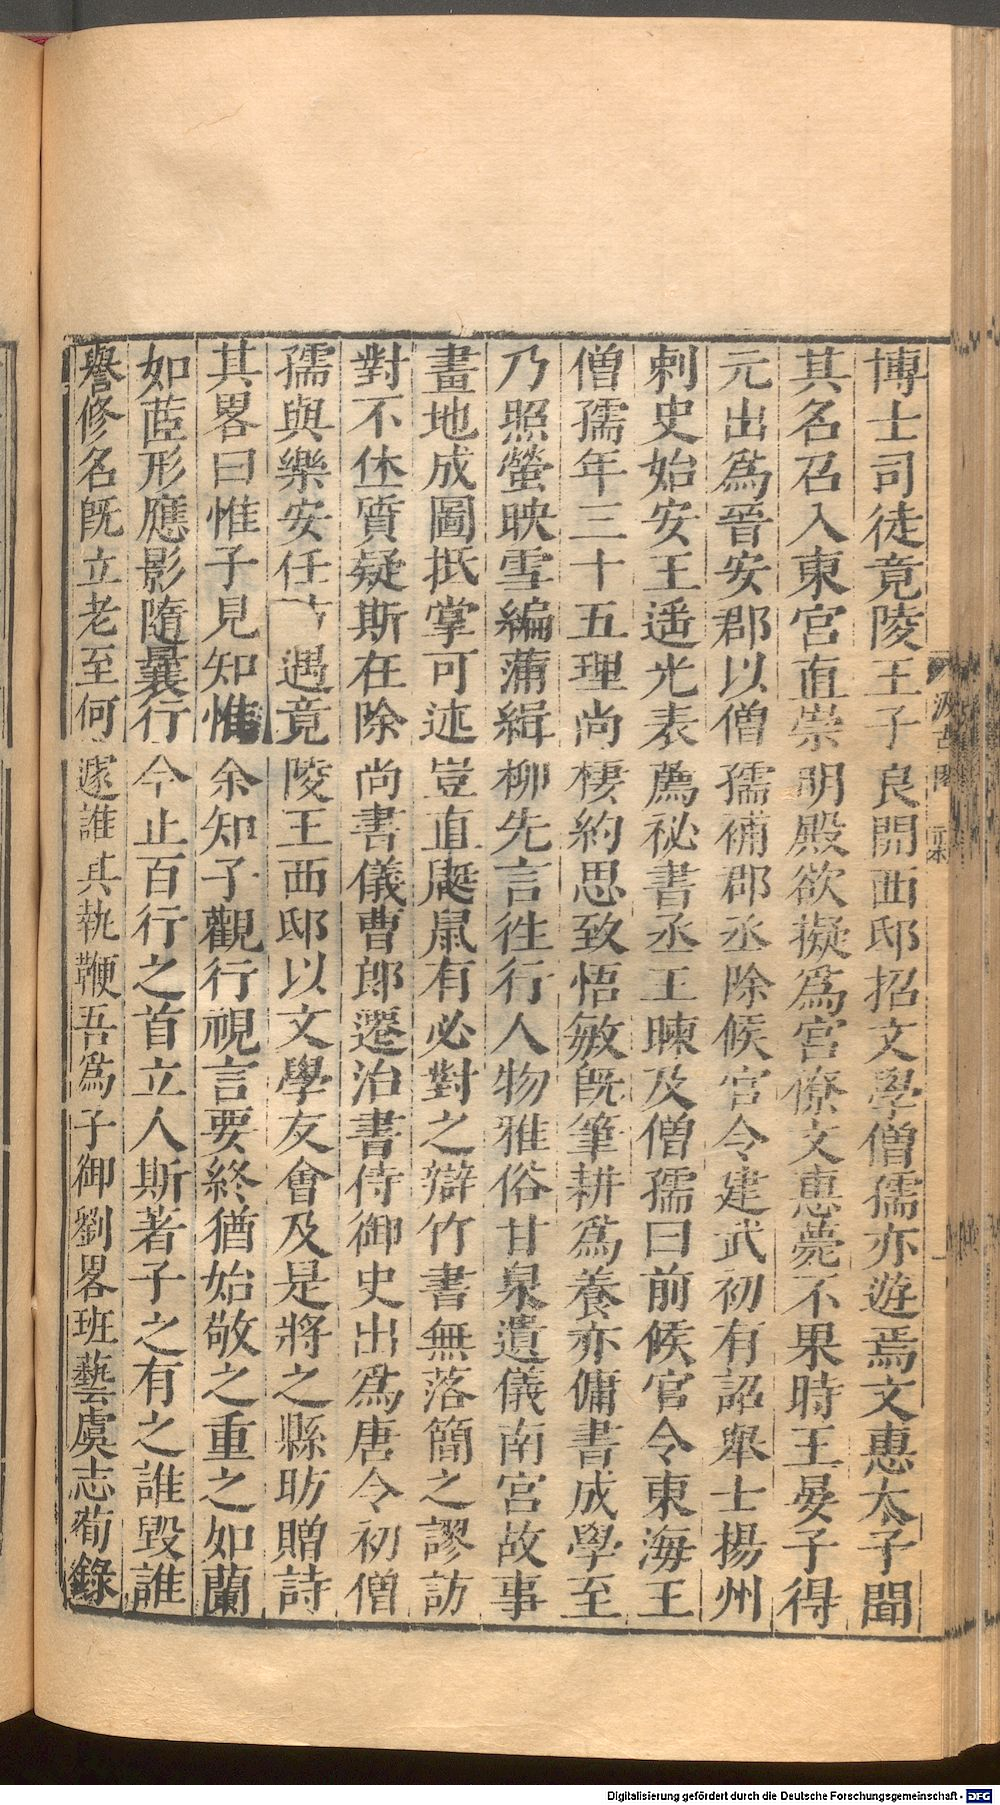 博士司徒竟陵王子良開西邸招文學僧孺亦遊焉文惠太子聞
其名召入東宮直崇明殿欲擬爲宮僚文惠薨不果時王晏子得
元出爲晉安郡以僧孺補郡丞除候官令建武初有詔舉士揚州
刺史始安王遥光表薦祕書丞王暕及僧孺曰前候官令東海王
僧孺年三十五理尚棲約思致悟敏旣筆耕爲養亦傭書成學至
乃照螢映雪編蒲緝柳先言徃行人物雅俗甘泉遺儀南宮故事
畫地成圖抵掌可述豈直鼮鼠有必對之辯竹書無落簡之謬訪
對不休質疑斯在除尚書儀曹郎遷治書侍御史出爲唐令初僧
孺與樂安任遇竟陵王西邸以文學友會及是將之縣昉贈詩
其畧曰惟子見知惟余知子觀行視言要終猶始敬之重之如蘭
如茝形應影隨曩行今止百行之首立人斯著子之有之誰毀誰
譽修名旣立老至何遽誰其執鞭吾爲子御劉畧班藝虞志荀錄
汲古閣
Digitalisierung gefördert durch die Deutsche Forschungsgemeinschaft - DFG